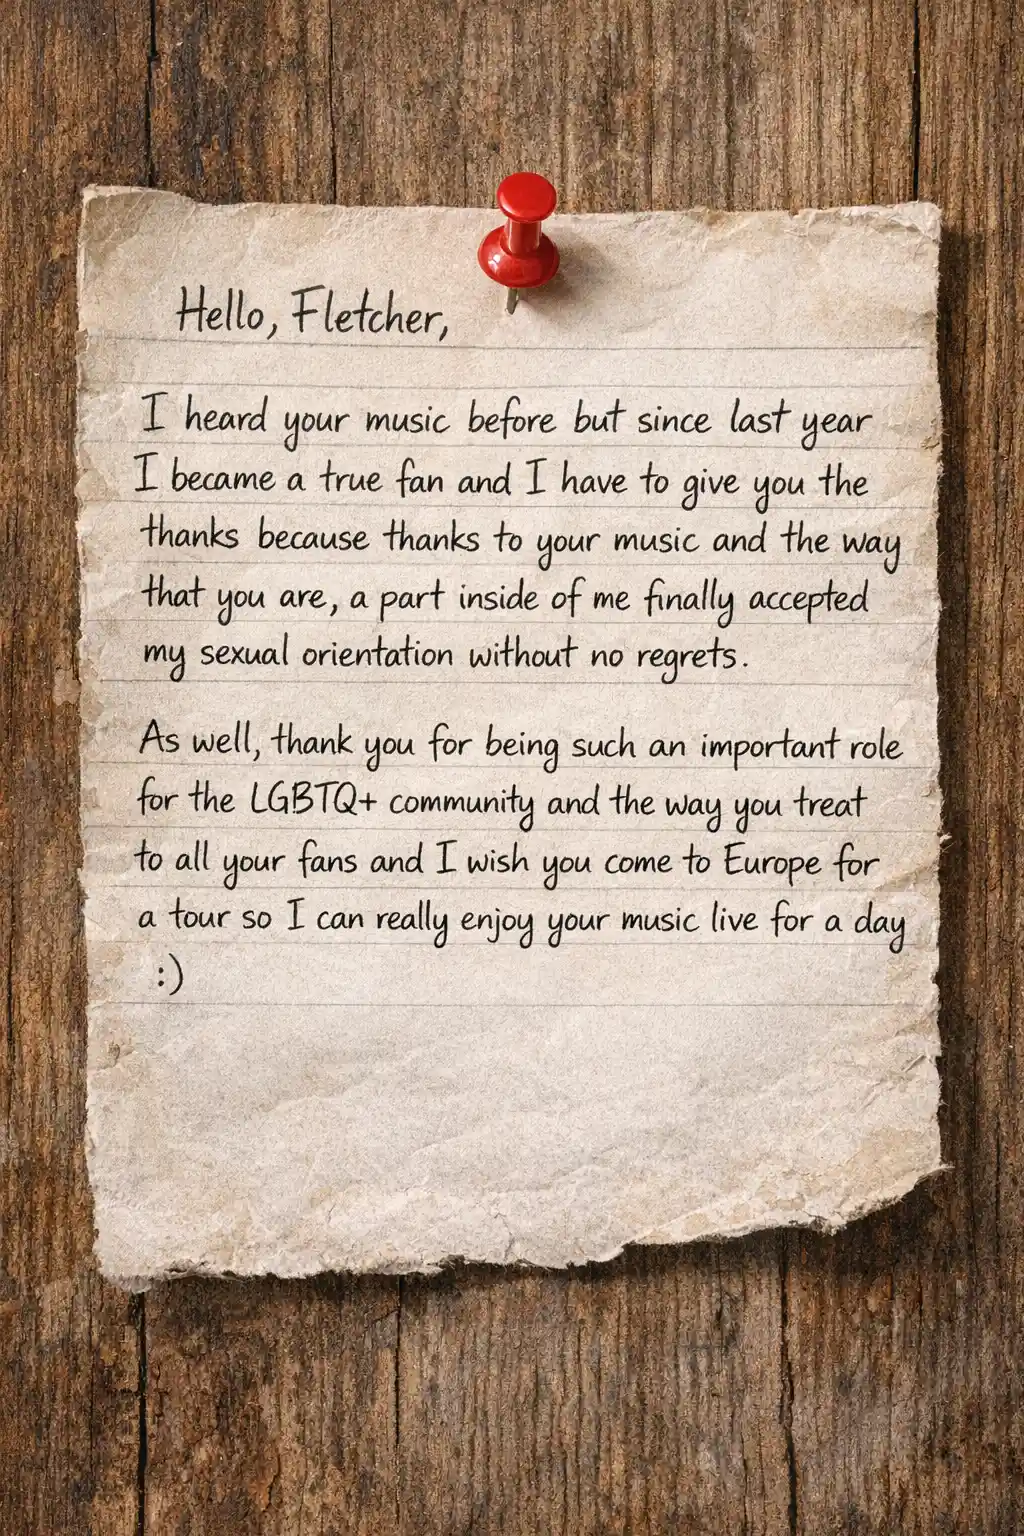 Hello, Fletcher,
I heard your music before but since last year
I became a true fan and I have to give you the
thanks because thanks to your music and the way
that you are, a part inside of me finally accepted
my sexual orientation without no regrets.
As well, thank you for being such an important role
for the LGBTQ+ community and the way you treat
to all your fans and I wish you come to Europe for
a tour so I can really enjoy your music live for a day
:)